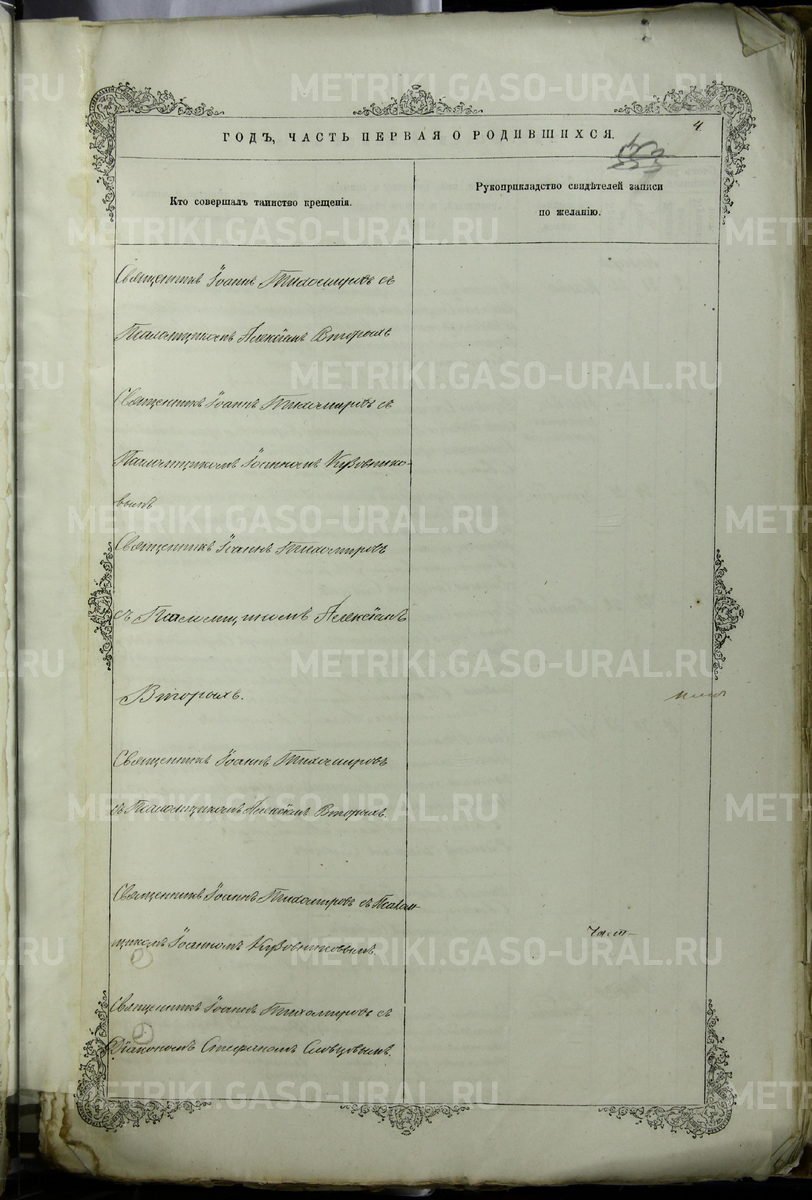 METRIKI.GASO-URAL.RU
4.
ГОДЪ, ЧАСТЬ ПЕРВАЯ О РОДИВШИХСЯ.
Кто совершалъ таинство крещенія.
Рукоприкладство свидѣтелей записи
по желанію.
Священникъ Іоаннъ Тихомировъ съ
Псаломщикомъ Алексѣемъ Вторыхъ
Священникъ Іоаннъ Тихомировъ съ
Псаломщикомъ Іоанномъ Кузовнико-
вымъ
Священникъ Іоаннъ Тихомировъ
съ Псаломщикомъ Алексѣемъ
Вторыхъ.
Священникъ Іоаннъ Тихомировъ
съ Псаломщикомъ Алексѣемъ Вторыхъ.
Священникъ Іоаннъ Тихомировъ съ Псалом-
щикомъ Іоанномъ Кузовниковымъ.
Священникъ Іоаннъ Тихомировъ съ
Діакономъ Стефаномъ Словцовымъ.